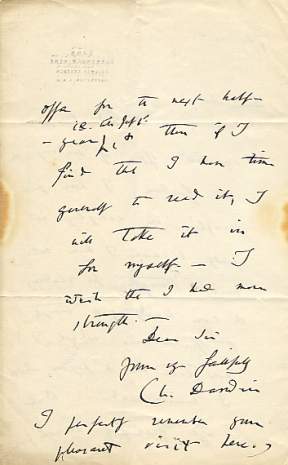 offer for the next half-
- year, & then if I
find that I have time
myself to read it, I
will take it in
for myself. — I
wish that I had more
strength. —
Dear Sir
Yours very faithfully
Ch. Darwin
I perfectly remember your
pleasant visit here. —